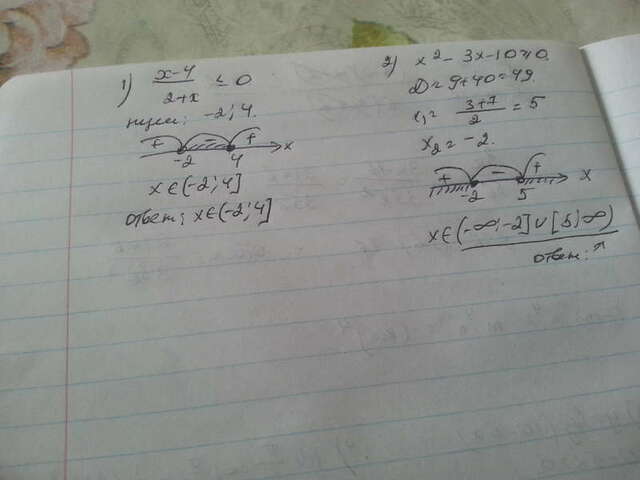 1) x-4
2+x ≤ 0
нули: -2; 4.
+ - +
-2 4 x
x∈(-2; 4]
ответ: x∈(-2; 4]
2) x² - 3x - 10 ≥ 0.
D = 9 + 40 = 49.
x₁ = 3+7
2 = 5
x₂ = -2.
+ - +
-2 5 x
x∈(-∞; -2] ∪ [5; ∞)
ответ: ↑